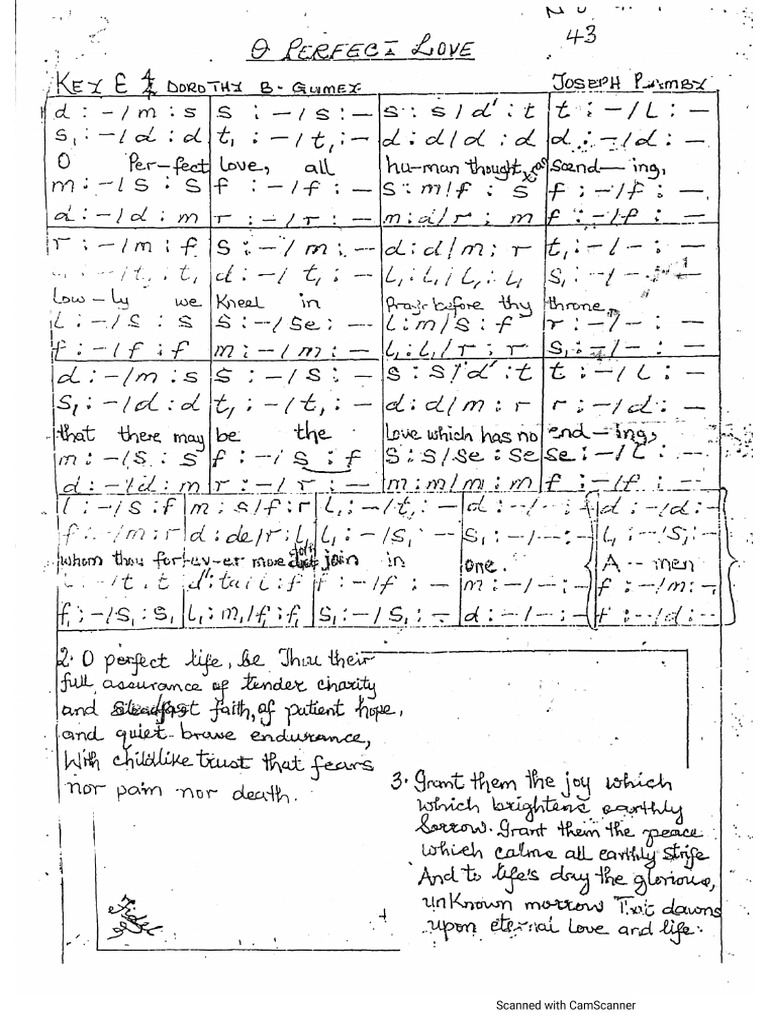 43
O PERFECT LOVE
KEY E 4/4 DOROTHY B. GURNEY JOSEPH
d : - / m : s | s : - / s : - | s : s / d' : t | t : - / l : -
s₁ : - / d : d | t₁ : - / t₁ : - | d : d / d : d | d : - / d : -
O Per-fect Love, all hu-man thought tran scend-ing,
m : - / s : s | f : - / f : - | s : m / f : s | f : - / f : -
d : - / d : m | r : - / r : - | m : d / r : m | f : - / f : -
r : - / m : f | s : - / m : - | d : d / m : r | t₁ : - / - : -
: - / t₁ : t₁ | d : - / t₁ : - | l₁ : l₁ / l₁ : l₁ | s₁ : - / - : -
Low-ly we Kneel in Prayr before thy throne,
l : - / s : s | s : - / se : - | l : m / s : f | r : - / - : -
f : - / f : f | m : - / m : - | l₁ : l₁ / r : r | s₁ : - / - : -
d : - / m : s | s : - / s : - | s : s / d' : t | t : - / l : -
s₁ : - / d : d | t₁ : - / t₁ : - | d : d / m : r | r : - / d : -
that there may be the Love which has no end-ing,
m : - / s : s | f : - / s : f | s : s / se : se | se : - / l : -
d : - / d : m | r : - / r : - | m : m / m : m | f : - / f : -
l : - / s : f | m : s / f : r | l₁ : - / t₁ : - | d : - / - : - | d : - / d : -
f : - / m : r | d : de / r : l₁ | l₁ : - / s₁ : - | s₁ : - / - : - | l₁ : - / s₁ : -
whom thou for-ev-er more join in one. A--men
: - / t : t | d' : ta / l : f | f : - / f : - | m : - / - : - | f : - / m : -
f₁ : - / s₁ : s₁ | l₁ : m₁ / f₁ : f₁ | s₁ : - / s₁ : - | d : - / - : - | f : - / d : -
2. O perfect life, be Thou their
full assurance of tender charity
and steadfast faith, of patient hope,
and quiet-brave endurance,
With childlike trust that fears
nor pain nor death.
3. Grant them the joy which
which brightens earthly
Sorrow. Grant them the peace
which calms all earthly strife
And to life's day the glorious,
unknown morrow That dawns
upon eternal love and life.
Scanned with CamScanner